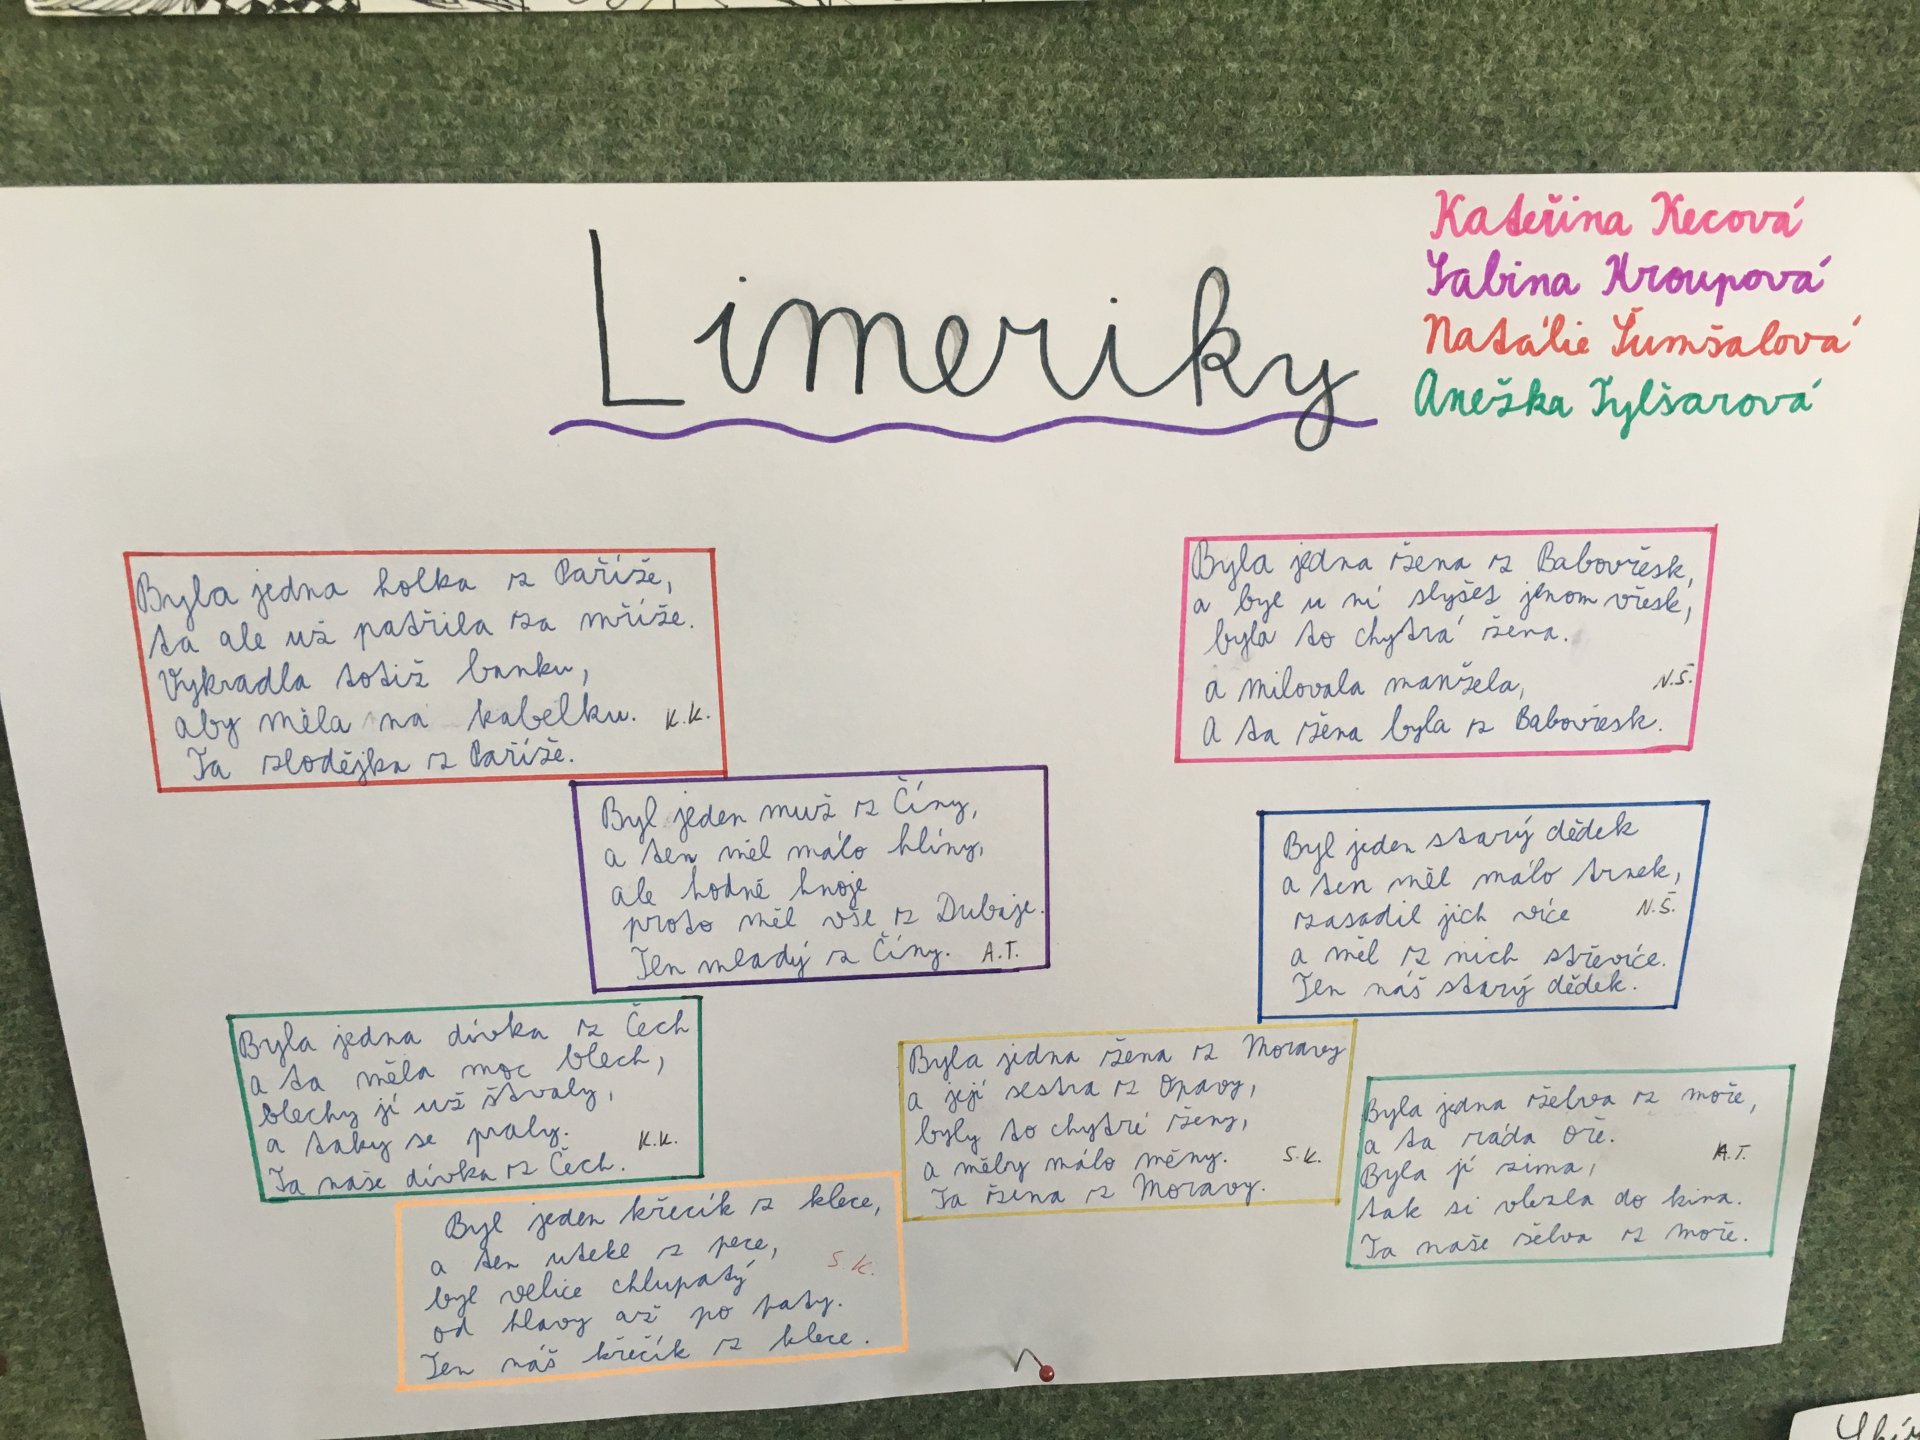 Limeriky
Kateřina Kecová
Sabina Kroupová
Natálie Šumšalová
Anežka Tylšarová
Byla jedna holka z Paříže,
ta ale už patřila za mříže.
Vykradla totiž banku,
aby měla na kabelku. K.K.
Ta zlodějka z Paříže.
Byla jedna žena z Babovřesk,
a byl u ní slyšet jenom vřesk,
byla to chytrá žena.
a milovala manžela, N.Š.
A ta žena byla z Babovřesk.
Byl jeden muž z Číny,
a ten měl málo hlíny,
ale hodně hnoje
proto měl vše z Dubaje.
Ten mladý z Číny. A.T.
Byl jeden starý dědek
a ten měl málo trnek,
zasadil jich více N.Š.
a měl z nich střevíce.
Ten náš starý dědek.
Byla jedna dívka z Čech
a ta měla moc blech,
blechy jí už štvaly,
a taky se praly. K.K.
Ta naše dívka z Čech.
Byla jedna žena z Moravy
a její sestra z Opavy,
byly to chytré ženy,
a měly málo měny. S.K.
Ta žena z Moravy.
Byla jedna želva z moře,
a ta ráda oře.
Byla jí zima, A.T.
tak si vlezla do kina.
Ta naše želva z moře.
Byl jeden křeček z klece,
a ten utekl z pece,
byl velice chlupatý S.K.
od hlavy až po paty.
Ten náš křečík z klece.